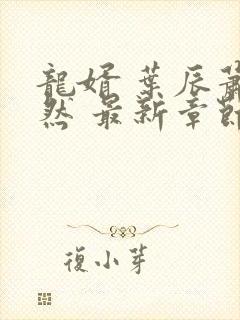 龍婿 葉辰蕭
然 最新章節
復小芽